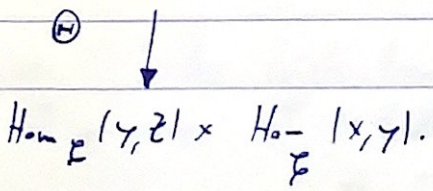 Θ ↓
Hom_ℰ(y,z) × Hom_ℰ(x,y).